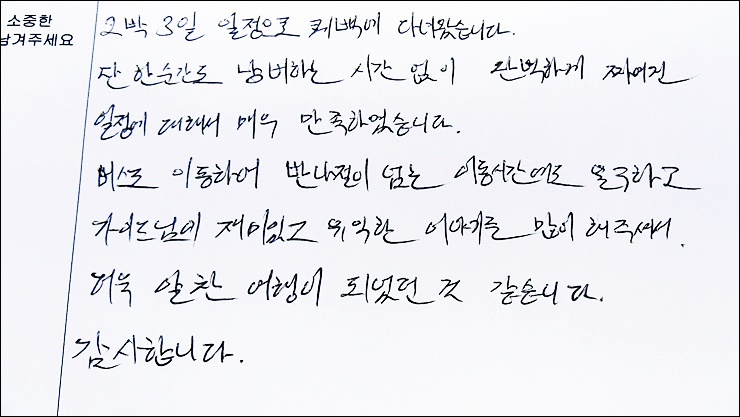 소중한
남겨주세요
2박 3일 일정으로 퀘백에 다녀왔습니다.
단 한순간도 낭비하는 시간 없이 완벽하게 짜여진
일정에 대해서 매우 만족하였습니다.
버스로 이동하여 반나절이 넘는 이동시간에도 불구하고
가이드님이 재미있고 유익한 이야기를 많이 해주셔서.
더욱 알찬 여행이 되었던 것 같습니다.
감사합니다.